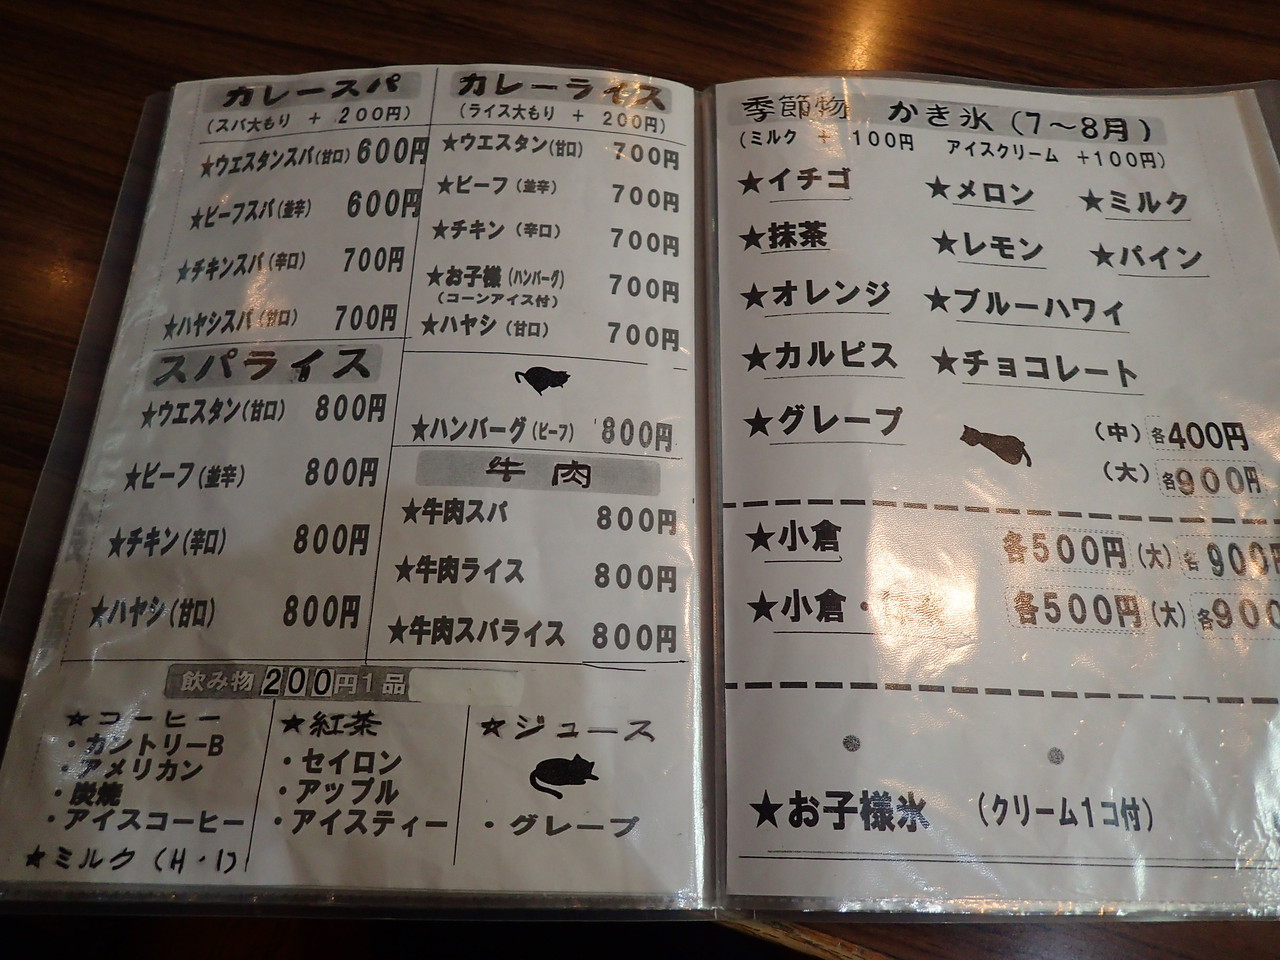 カレースパ
(スパ大もり + 200円)
★ウエスタンスパ(甘口) 600円
★ビーフスパ(並辛) 600円
★チキンスパ(辛口) 700円
★ハヤシスパ(甘口) 700円
スパライス
★ウエスタン(甘口) 800円
★ビーフ(並辛) 800円
★チキン(辛口) 800円
★ハヤシ(甘口) 800円
カレーライス
(ライス大もり + 200円)
★ウエスタン(甘口) 700円
★ビーフ(並辛) 700円
★チキン(辛口) 700円
★お子様(ハンバーグ) 700円
(コーンアイス付)
★ハヤシ(甘口) 700円
★ハンバーグ(ビーフ) 800円
牛肉
★牛肉スパ 800円
★牛肉ライス 800円
★牛肉スパライス 800円
飲み物200円1品
★コーヒー
・カントリーB
・アメリカン
・炭焼
・アイスコーヒー
★ミルク(H・I)
★紅茶
・セイロン
・アップル
・アイスティー
★ジュース
・グレープ
季節物 かき氷(7〜8月)
(ミルク + 100円 アイスクリーム +100円)
★イチゴ ★メロン ★ミルク
★抹茶 ★レモン ★パイン
★オレンジ ★ブルーハワイ
★カルピス ★チョコレート
★グレープ
(中)各400円
(大)各900円
★小倉 各500円(大)各900円
★小倉・ 各500円(大)各900
★お子様氷 (クリーム1コ付)